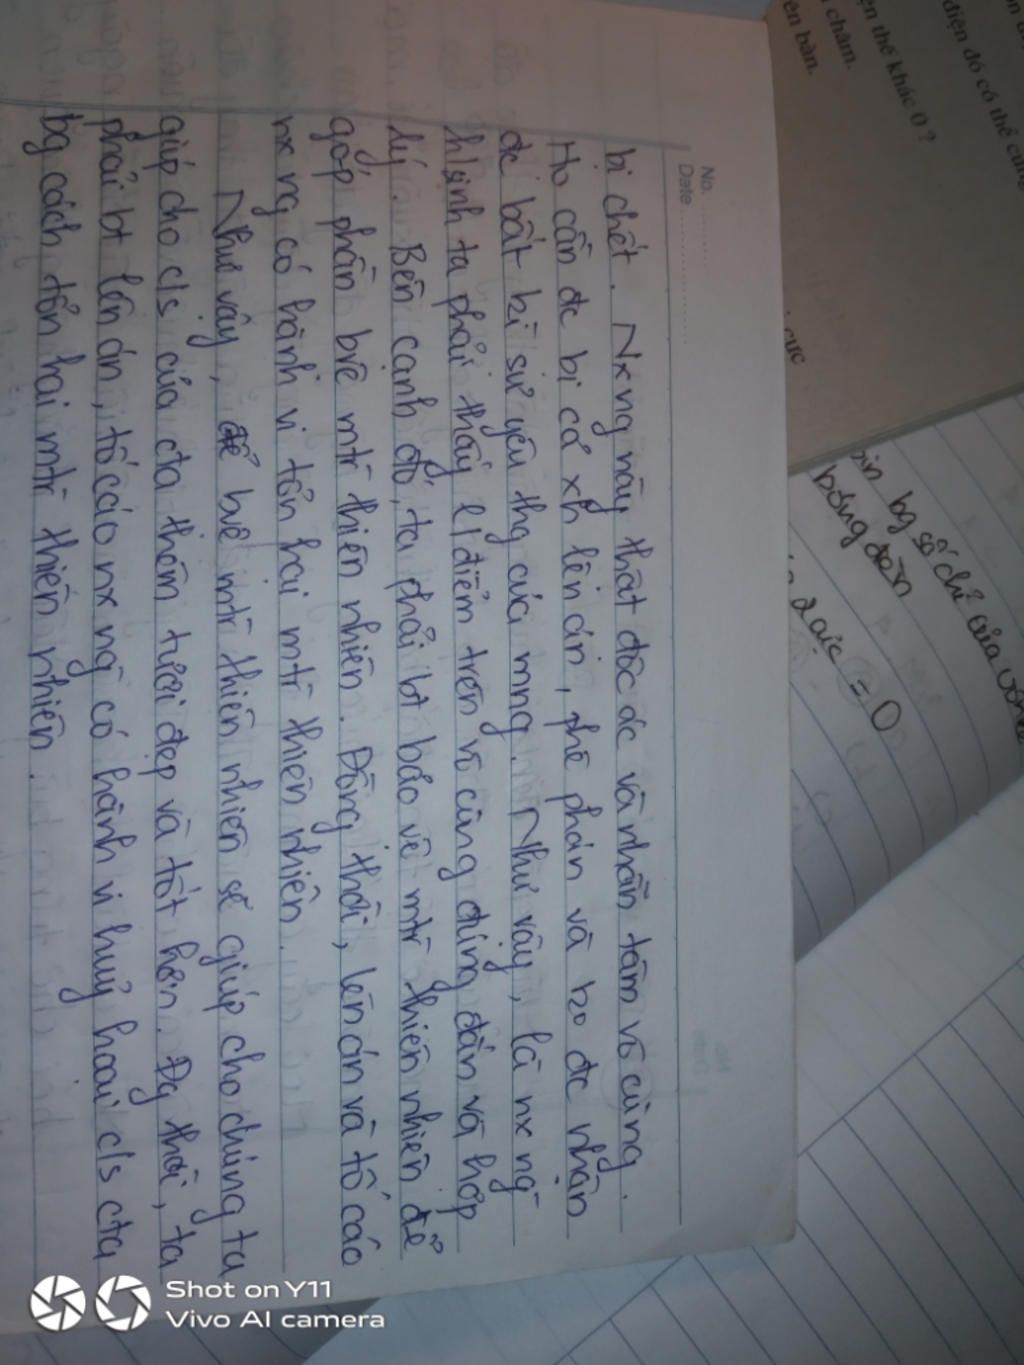 No. ............
Date ....................
bị chết. Nx ng này thật độc ác và nhẫn tâm vô cùng.
Họ cần đc bị cả xh lên án, phê phán và ko đc nhận
đc bất kì sự yêu thg của mng. Như vậy, là nx ng
h/sinh ta phải thấy q/điểm trên vô cùng đúng đắn và hợp
lý. Bên cạnh đó, ta phải bt bảo vệ mtr thiên nhiên để
góp phần bvệ mtr thiên nhiên. Đồng thời, lên án và tố cáo
nx ng có hành vi tổn hại mtr thiên nhiên.
Như vậy, để bvê mtr thiên nhiên sẽ giúp cho chúng ta
giúp cho c/s của cta thêm tươi đẹp và tốt hơn. Đg thời, ta
phải bt lên án, tố cáo nx ng có hành vi huỷ hoại c/s cta
bg cách tổn hại mtr thiên nhiên.
điện đó có thể cùng
ện thế khác 0 ?
châm.
ên bàn.
cực
pin bg số chỉ của vôn
bóng đèn
2 cực = 0
Shot on Y11
Vivo AI camera